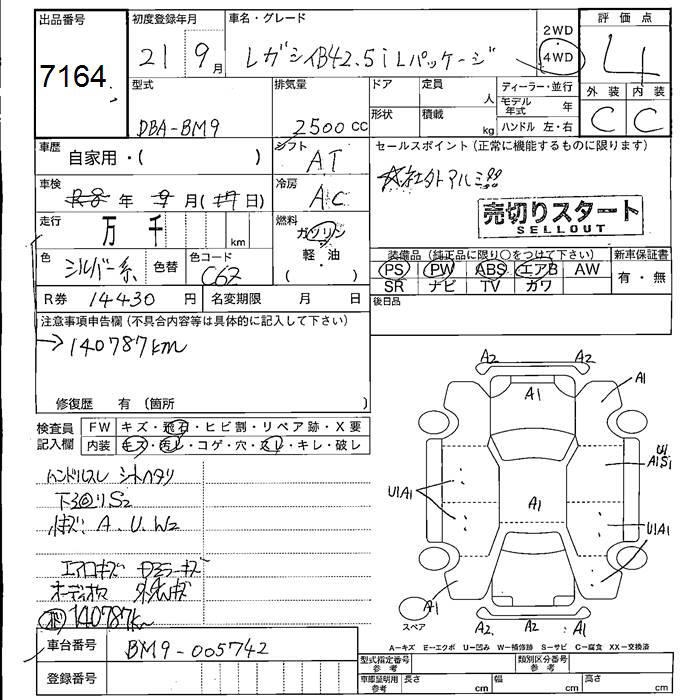 出品番号
7164
初度登録年月
21 9月
車名・グレード
レガシィB4 2.5iLパッケージ
2WD
4WD
評価点
4
型式
DBA-BM9
排気量
2500cc
ドア
定員
人
形状
積載
kg
ディーラー・並行
モデル年式 年
ハンドル 左・右
外装 内装
C C
車歴
自家用・( )
シフト
AT
セールスポイント (正常に機能するものに限ります)
社外アルミ!!
売切りスタート
SELLOUT
車検
年 月 日)
冷房
AC
走行
万 千 km
燃料
ガソリン
軽・油
( )
色
シルバー系
色替
色コード
C6Z
R券 14430円
名変期限 月 日
装備品 (純正品に限り○をつけて下さい)
PS PW ABS エアB AW
SR ナビ TV カワ
新車保証書
有・無
後日品
注意事項申告欄 (不具合内容等は具体的に記入して下さい)
→140787km
修復歴 有 (箇所 )
検査員記入欄
FW キズ・飛石・ヒビ割・リペア跡・X要
内装 キズ・汚レ・コゲ・穴・スレ・キレ・破レ
ハンドルスレ シートヘタリ
下回りS2
A.U.W2
エアロキズ ドアミラーキズ
140787km
車台番号
BM9-005742
登録番号
A2 A2
A1
A1
U1
A1S1
U1A1
A1
U1A1
A1
スペア
A2 A2 A1
A-キズ E-エクボ U-凹み W-補修跡 S-サビ C-腐食 XX-交換済
型式指定番号
参考
類別区分番号
参考
車庫証明用
参考
長さ cm
幅 cm
高さ cm